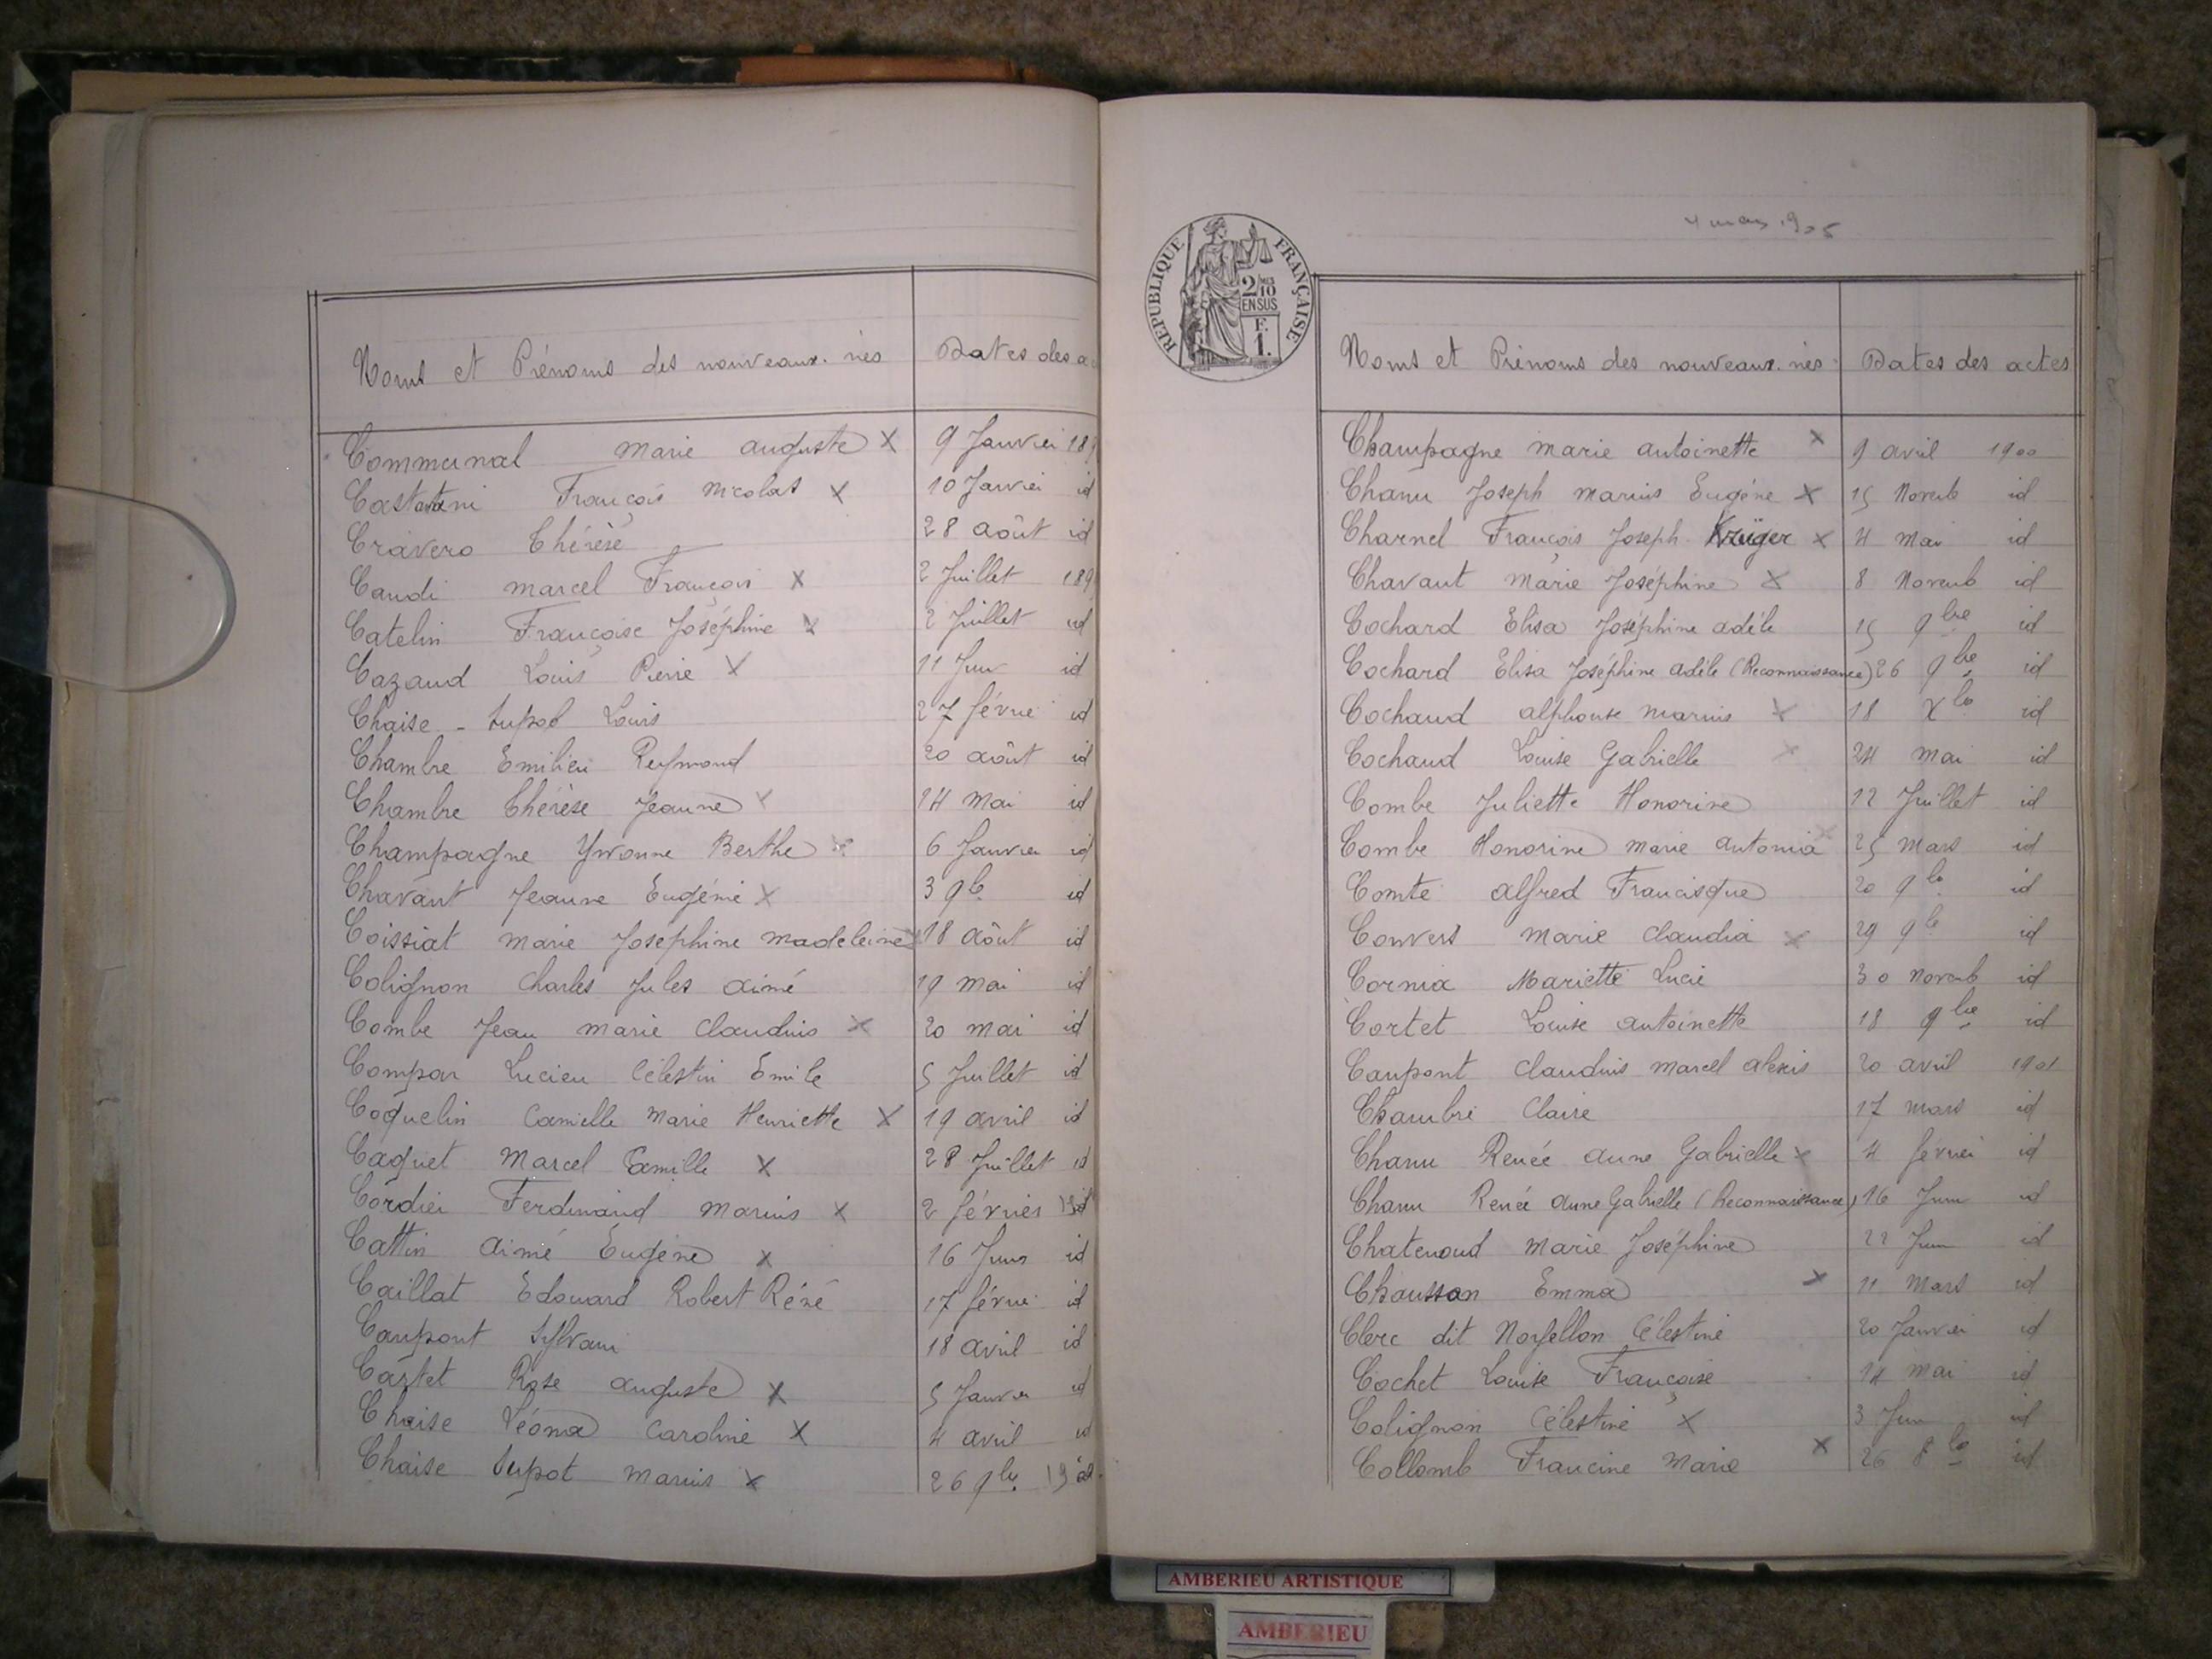 Noms et Prénoms des nouveaux-nés Dates des a
Communal marie auguste X 9 Janvier 189
Castatini François Nicolas X 10 Janvier id
Cravero Thérèse 28 août id
Caudi marcel François X 2 Juillet 189
Catelin Françoise Joséphine X 2 Juillet id
Cazaud Louis Pierre X 11 Juin id
Chaise - Supot Louis 27 févrie id
Chambre Emilien Reymond 20 août id
Chambre Thérèse Jeanne X 14 mai id
Champagne Yvonne Berthe X 6 Janvier id
Chavant Jeanne Eugénie X 3 9b. id
Coissiat marie Joséphine madeleine X 18 août id
Colignon Charles Jules aimé 19 mai id
Combe Jean marie Claudius X 20 mai id
Compar Lucien Célestin Emile 5 Juillet id
Coquelin Camille Marie Henriette X 19 avril id
Caquet Marcel Camille X 28 Juillet id
Cordier Ferdinand marius X 2 février id
Cattin Aimé Eugène X 16 Juin id
Caillat Edouard Robert Réné 17 févrie id
Caupont Sylvain 18 avril id
Cartet Rose auguste X 5 Janvier id
Chaise Léona Caroline X 4 avril id
Chaise Supot marius X 26 9b.
REPUBLIQUE FRANÇAISE
2/10 MES
EN SUS
F.
1.
4 mars 1905
Noms et Prénoms des nouveaux-nés Dates des actes
Champagne marie antoinette X 9 avril 1900
Chanu Joseph marius Eugène X 15 Novemb id
Charnel François Joseph Krüger X 4 mai id
Chavant marie Joséphine X 8 Novemb id
Cochard Elisa Joséphine adèle 15 9bre id
Cochard Elisa Joséphine adèle (Reconnaissance) 26 9bre id
Cochaud alphonse marius X 18 Xbe id
Cochaud Louise Gabrielle X 24 mai id
Combe Juliette Honorine 12 Juillet id
Combe Honorine marie antonia X 25 mars id
Comte alfred Francisque 20 9be id
Convert marie claudia X 29 9be id
Cornia Mariette Lucie 30 Novemb id
Cortet Louise antoinette 18 9bre id
Caupont claudius marcel alexis 20 avril 1901
Chambre Claire 17 mars id
Chanu Renée anne Gabrielle X 4 février id
Chanu Renée anne Gabrielle (Reconnaissance) 16 Juin id
Chatenoud marie Joséphine 22 Juin id
Chausson Emma X 11 mars id
Clerc dit Noyellon Célestine 20 Janvier id
Cochet Louise Françoise 14 mai id
Colignon Célestine X 3 Juin id
Collomb Francine Marie X 26 8be id
AMBERIEU ARTISTIQUE
AMBERIEU